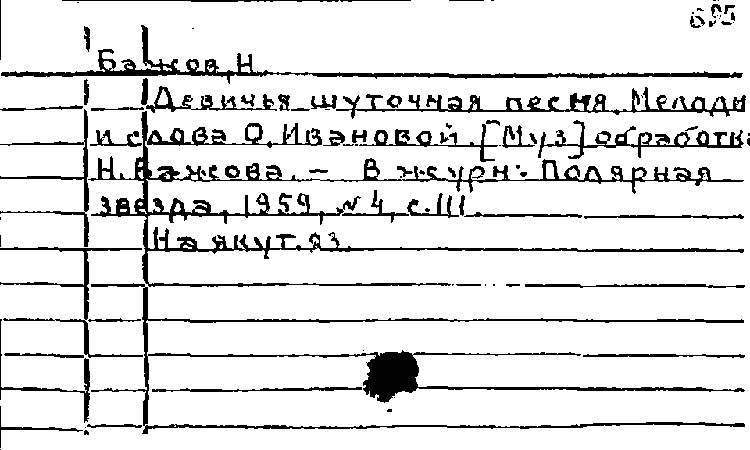 695
Бажов, Н.
Девичья шуточная песня. Мелоди
и слова О. Ивановой. [Муз] обработка
Н. Бажова. - В журн: Полярная
звезда, 1959, №4, с. 111.
На якут. яз.